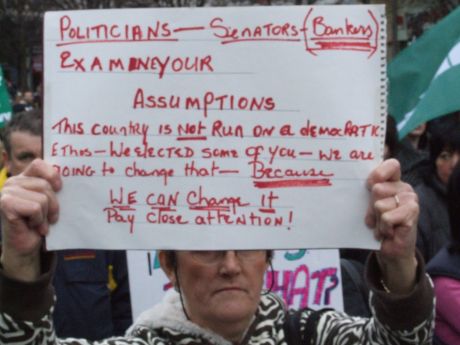 POLITICIANS — SENATORS - (Bankers)
EXAMINE YOUR
ASSUMPTIONS
This country is NOT Run on a democratic
Ethos - We elected some of you - we are
going to change that - Because
WE CAN Change IT
Pay close attention!
WHAT?